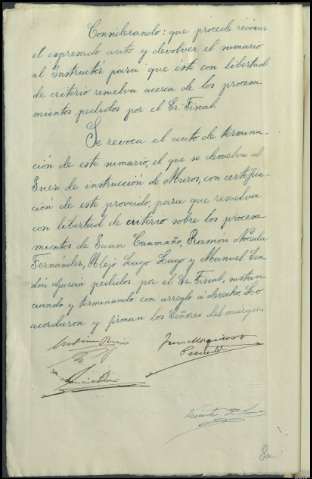 Considerando: que procede revocar
el expresado auto y devolver el sumario
al Instructor para que este con libertad
de criterio resuelva acerca de los procesa-
mientos pedidos por el Sr. Fiscal.
Se revoca el auto de termina-
ción de este sumario, el que se devolverá al
Juez de instrucción de Muros, con certifica-
ción de este proveido, para que resuelva
con libertad de criterio sobre los procesa-
mientos de Juan Caamaño, Ramon
Fernández, Alejo Lago Lago y Manuel
García pedidos por el Sr. Fiscal, sustan-
ciando y terminando con arreglo á derecho. Lo
acordaron y firman los Señores del margen